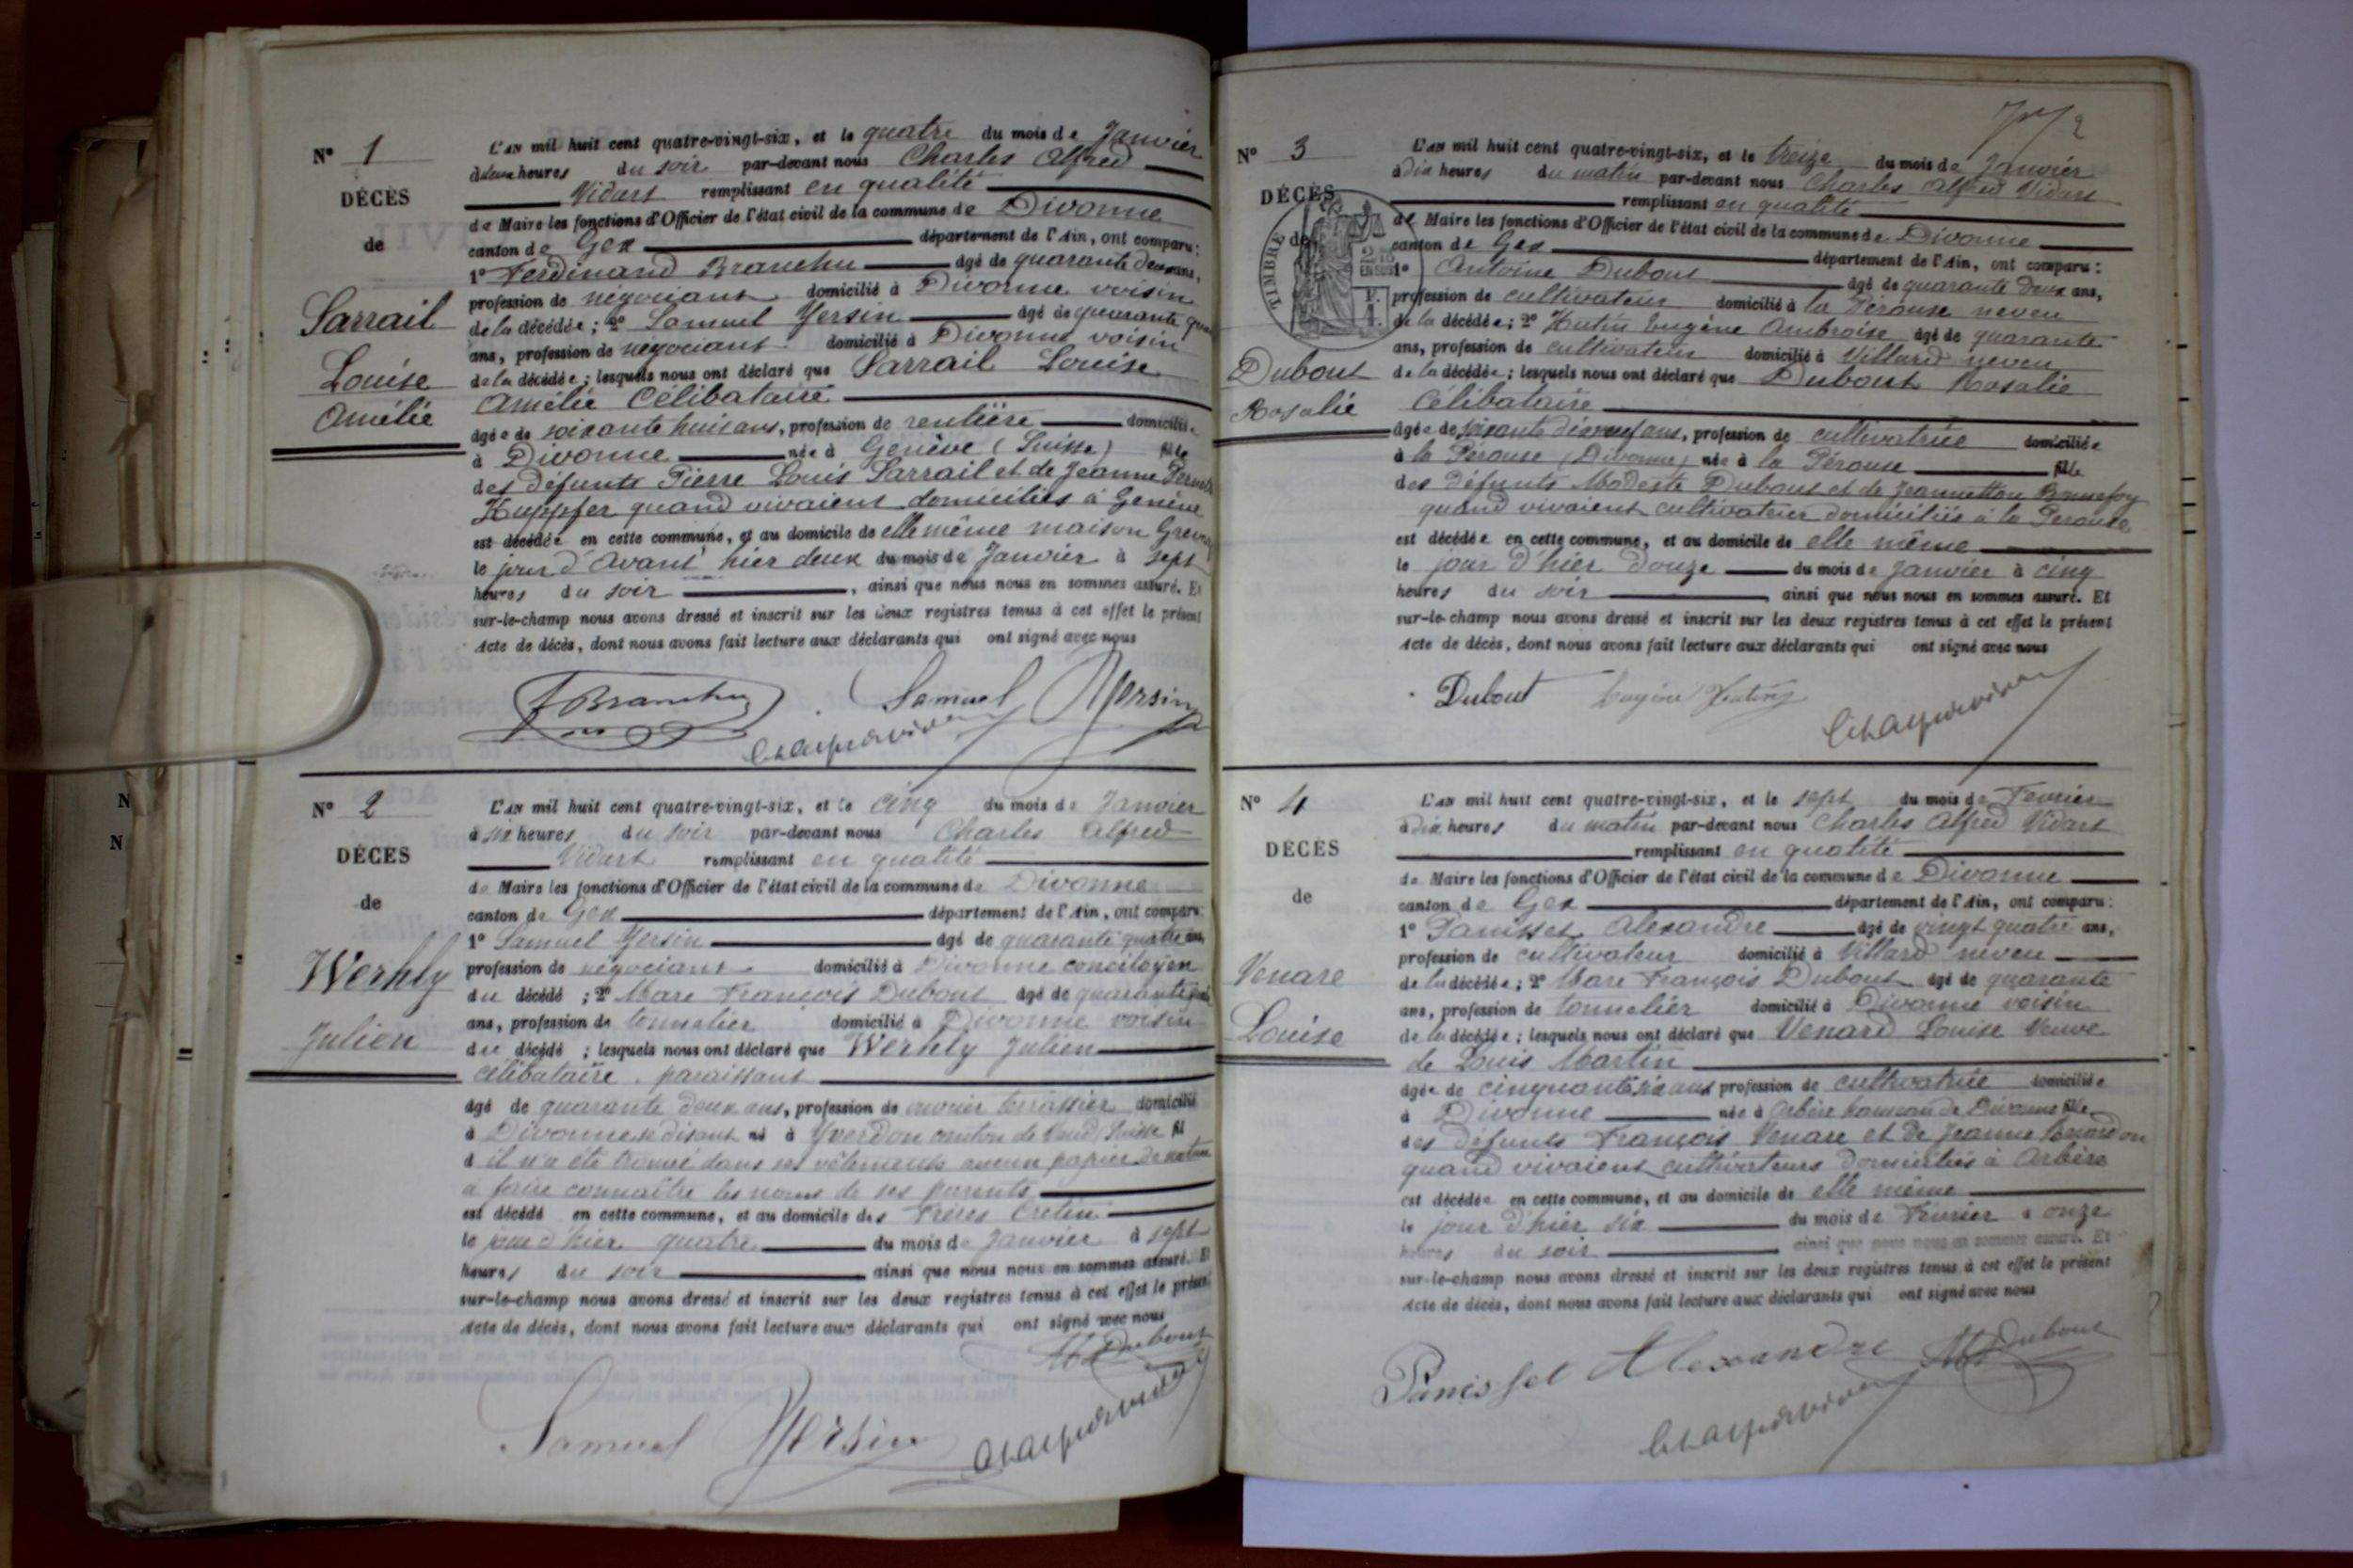 N° 1
DÉCÈS
de
Sarrail
Louise
Amélie
L'AN mil huit cent quatre-vingt-six, et le quatre du mois de Janvier
à deux heures du soir par-devant nous Charles Alfred
Vidart remplissant en qualité
de Maire les fonctions d'Officier de l'état civil de la commune de Divonne
canton de Gex département de l'Ain, ont comparu :
1° Ferdinand Branchu âgé de quarante deux ans,
profession de négociant domicilié à Divonne voisin
de la décédée ; 2° Samuel Yersin âgé de quarante
ans, profession de négociant domicilié à Divonne voisin
de la décédée ; lesquels nous ont déclaré que Sarrail Louise
Amélie Célibataire
âgée de soixante huit ans, profession de rentière domiciliée
à Divonne née à Genève (Suisse) fille
des défunts Pierre Louis Sarrail et de Jeanne
Kuppfer quand vivaient domiciliés à Genève
est décédée en cette commune, et au domicile de elle même maison
le jour d'avant hier deux du mois de Janvier à sept
heures du soir , ainsi que nous nous en sommes assuré. Et
sur-le-champ nous avons dressé et inscrit sur les deux registres tenus à cet effet le présent
Acte de décès, dont nous avons fait lecture aux déclarants qui ont signé avec nous
F Branchu Samuel Yersin
N° 2
DÉCÈS
de
Wernly
Julien
L'AN mil huit cent quatre-vingt-six, et le cinq du mois de Janvier
à six heures du soir par-devant nous Charles Alfred
Vidart remplissant en qualité
de Maire les fonctions d'Officier de l'état civil de la commune de Divonne
canton de Gex département de l'Ain, ont comparu :
1° Samuel Yersin âgé de quarante quatre ans,
profession de négociant domicilié à Divonne concitoyen
du décédé ; 2° Marc François Dubout âgé de quarante
ans, profession de tonnelier domicilié à Divonne voisin
du décédé ; lesquels nous ont déclaré que Wernly Julien
célibataire. paraissant
âgé de quarante deux ans, profession de ouvrier terrassier domicilié
à Divonne se disant né à Yverdon canton de Vaud Suisse fil
d il n'a été trouvé dans ses vêtements aucun papier de nature
a faire connaître les noms de ses parents
est décédé en cette commune, et au domicile des frères Crétin
le jour d'hier quatre du mois de Janvier à sept
heures du soir ainsi que nous nous en sommes assuré. Et
sur-le-champ nous avons dressé et inscrit sur les deux registres tenus à cet effet le présent
Acte de décès, dont nous avons fait lecture aux déclarants qui ont signé avec nous
M Dubout
Samuel Yersin
N° 3
DÉCÈS
de
TIMBRE
Dubout
Rosalie
L'AN mil huit cent quatre-vingt-six, et le treize du mois de Janvier
à dix heures du matin par-devant nous Charles Alfred Vidart
remplissant en qualité
de Maire les fonctions d'Officier de l'état civil de la commune de Divonne
canton de Gex département de l'Ain, ont comparu :
1° Antoine Dubout âgé de quarante deux ans,
profession de cultivateur domicilié à la Pérouse neveu
de la décédée ; 2° Hutin Eugène Ambroise âgé de quarante
ans, profession de cultivateur domicilié à Villard neveu
de la décédée ; lesquels nous ont déclaré que Dubout Rosalie
Célibataire
âgée de soixante dixneuf ans, profession de cultivatrice domiciliée
à la Pérouse (Divonne) née à la Pérouse fille
des défunts Modeste Dubout et de Jeannetton Bonnefoy
quand vivaient cultivateur domiciliés à la Pérouse
est décédée en cette commune, et au domicile de elle même
le jour d'hier douze du mois de Janvier à cinq
heures du soir , ainsi que nous nous en sommes assuré. Et
sur-le-champ nous avons dressé et inscrit sur les deux registres tenus à cet effet le présent
Acte de décès, dont nous avons fait lecture aux déclarants qui ont signé avec nous
Dubout Eugène Hutin
N° 4
DÉCÈS
de
Venare
Louise
L'AN mil huit cent quatre-vingt-six, et le sept du mois de Fevrier
à dix heures du matin par-devant nous Charles Alfred Vidart
remplissant en qualité
de Maire les fonctions d'Officier de l'état civil de la commune de Divonne
canton de Gex département de l'Ain, ont comparu :
1° Panisset Alexandre âgé de vingt quatre ans,
profession de cultivateur domicilié à Villard neveu
de la décédée ; 2° Marc François Dubout âgé de quarante
ans, profession de tonnelier domicilié à Divonne voisin
de la décédée ; lesquels nous ont déclaré que Venard Louise Veuve
de Louis Martin
âgée de cinquante six ans profession de cultivatrice domiciliée
à Divonne née à Arbère hameau de Divonne fille
des défunts François Venare et de Jeanne
quand vivaient cultivateurs domiciliés à Arbère
est décédée en cette commune, et au domicile de elle même
le jour d'hier six du mois de Février à onze
heures du soir ainsi que nous nous en sommes assuré. Et
sur-le-champ nous avons dressé et inscrit sur les deux registres tenus à cet effet le présent
Acte de décès, dont nous avons fait lecture aux déclarants qui ont signé avec nous
Panisset Alexandre M Dubout